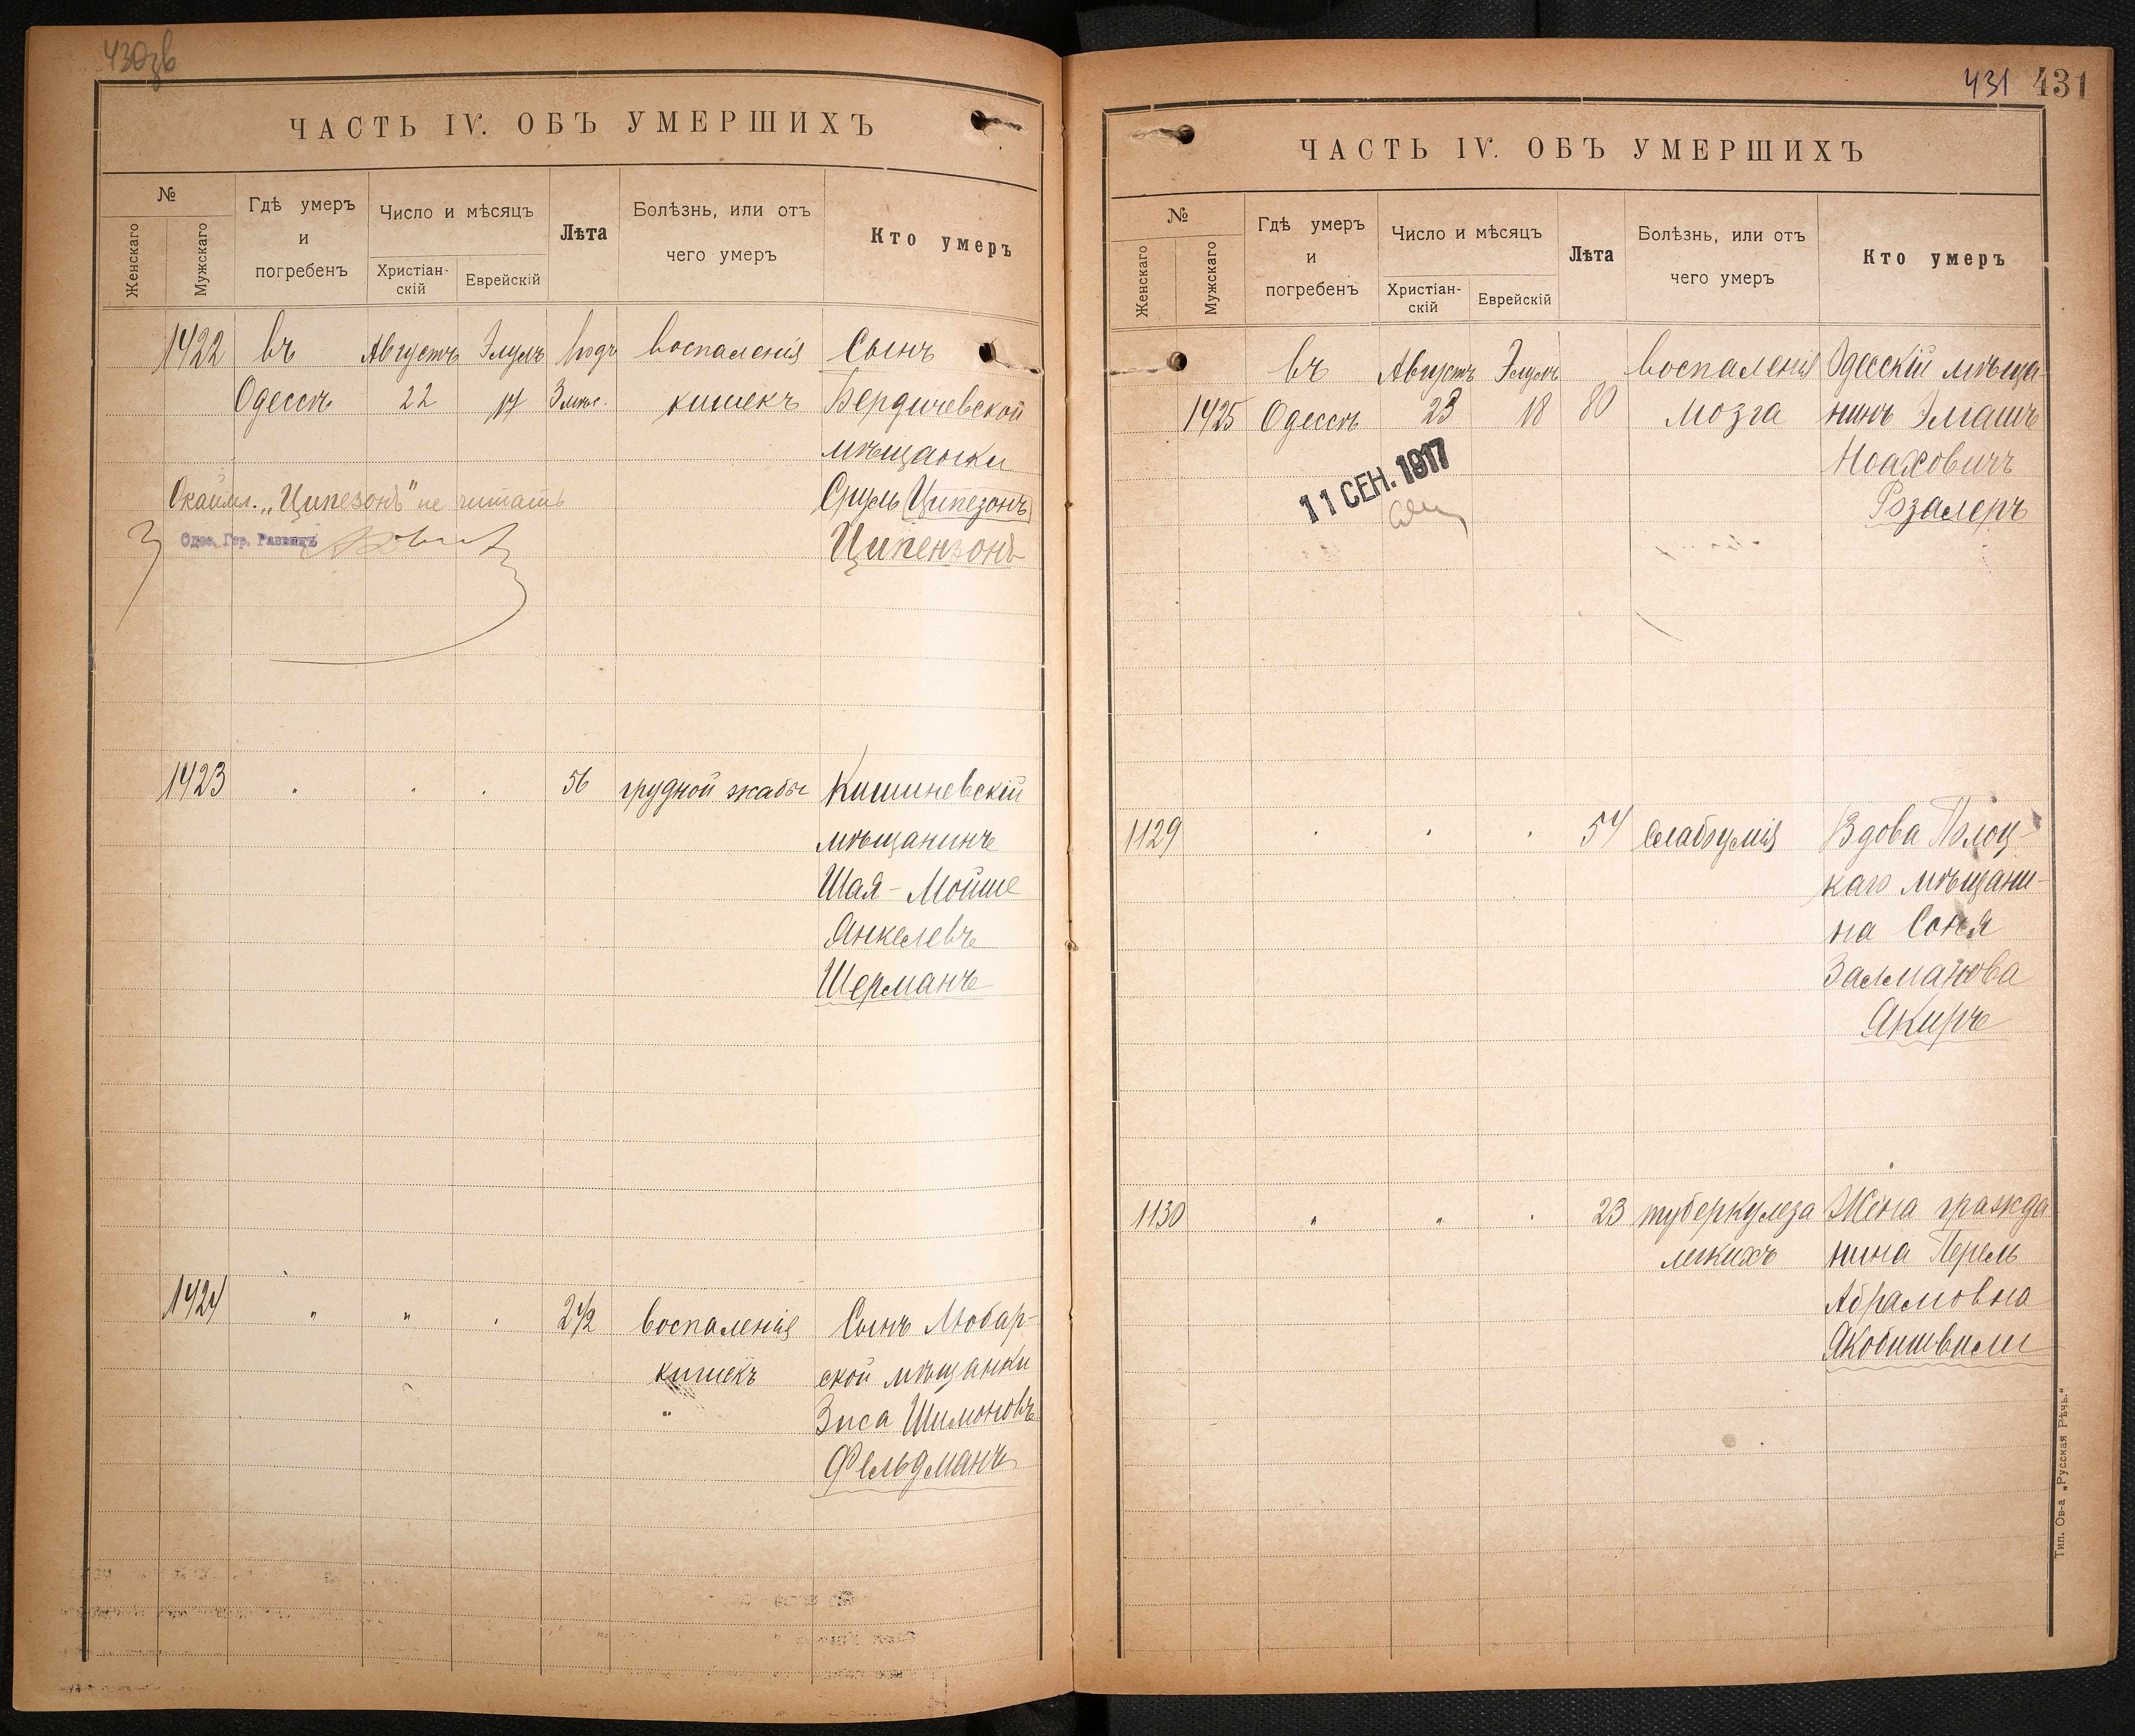 430зв
ЧАСТЬ IV. ОБЪ УМЕРШИХЪ
№
Женскаго
Мужскаго
Гдѣ умеръ
и
погребенъ
Число и мѣсяцъ
Христіан-
скій
Еврейскій
Лѣта
Болѣзнь, или отъ
чего умеръ
Кто умеръ
1422 въ Августъ Элулъ 1 годъ воспаленія Сынъ
Одессѣ 22 17 3 мѣс. кишекъ Бердичевской
мѣщанки
Окаймл. „Ципезонъ" не читать Сруль Ципезонъ
Одес. Гор. Раввинъ Ципензонъ
1423 . . . 56 грудной жабы Кишиневскій
мѣщанинъ
Шая-Мойше
Янкелевъ
Шерманъ
1424 " " . 2 1/2 воспаленія Сынъ Любар-
кишекъ ской мѣщанки
" Зиса Шимоновъ
Фельдманъ
431 431
ЧАСТЬ IV. ОБЪ УМЕРШИХЪ
№
Женскаго
Мужскаго
Гдѣ умеръ
и
погребенъ
Число и мѣсяцъ
Христіан-
скій
Еврейскій
Лѣта
Болѣзнь, или отъ
чего умеръ
Кто умеръ
въ Августъ Элулъ воспаленія Одесскій мѣща-
1425 Одессѣ 23 18 80 мозга нинъ Элиашъ
Ноаховичъ
11 СЕН. 1917 Розалеръ
1129 . . . 54 слабоумія Вдова Полоц-
каго мѣщани-
на Соня
Залманова
Якиръ
1130 " " . 23 туберкулеза Жена гражда
легкихъ нина Перель
Абрамовна
Якобишвили
Тип. Ов-а „Русская Рѣчь."